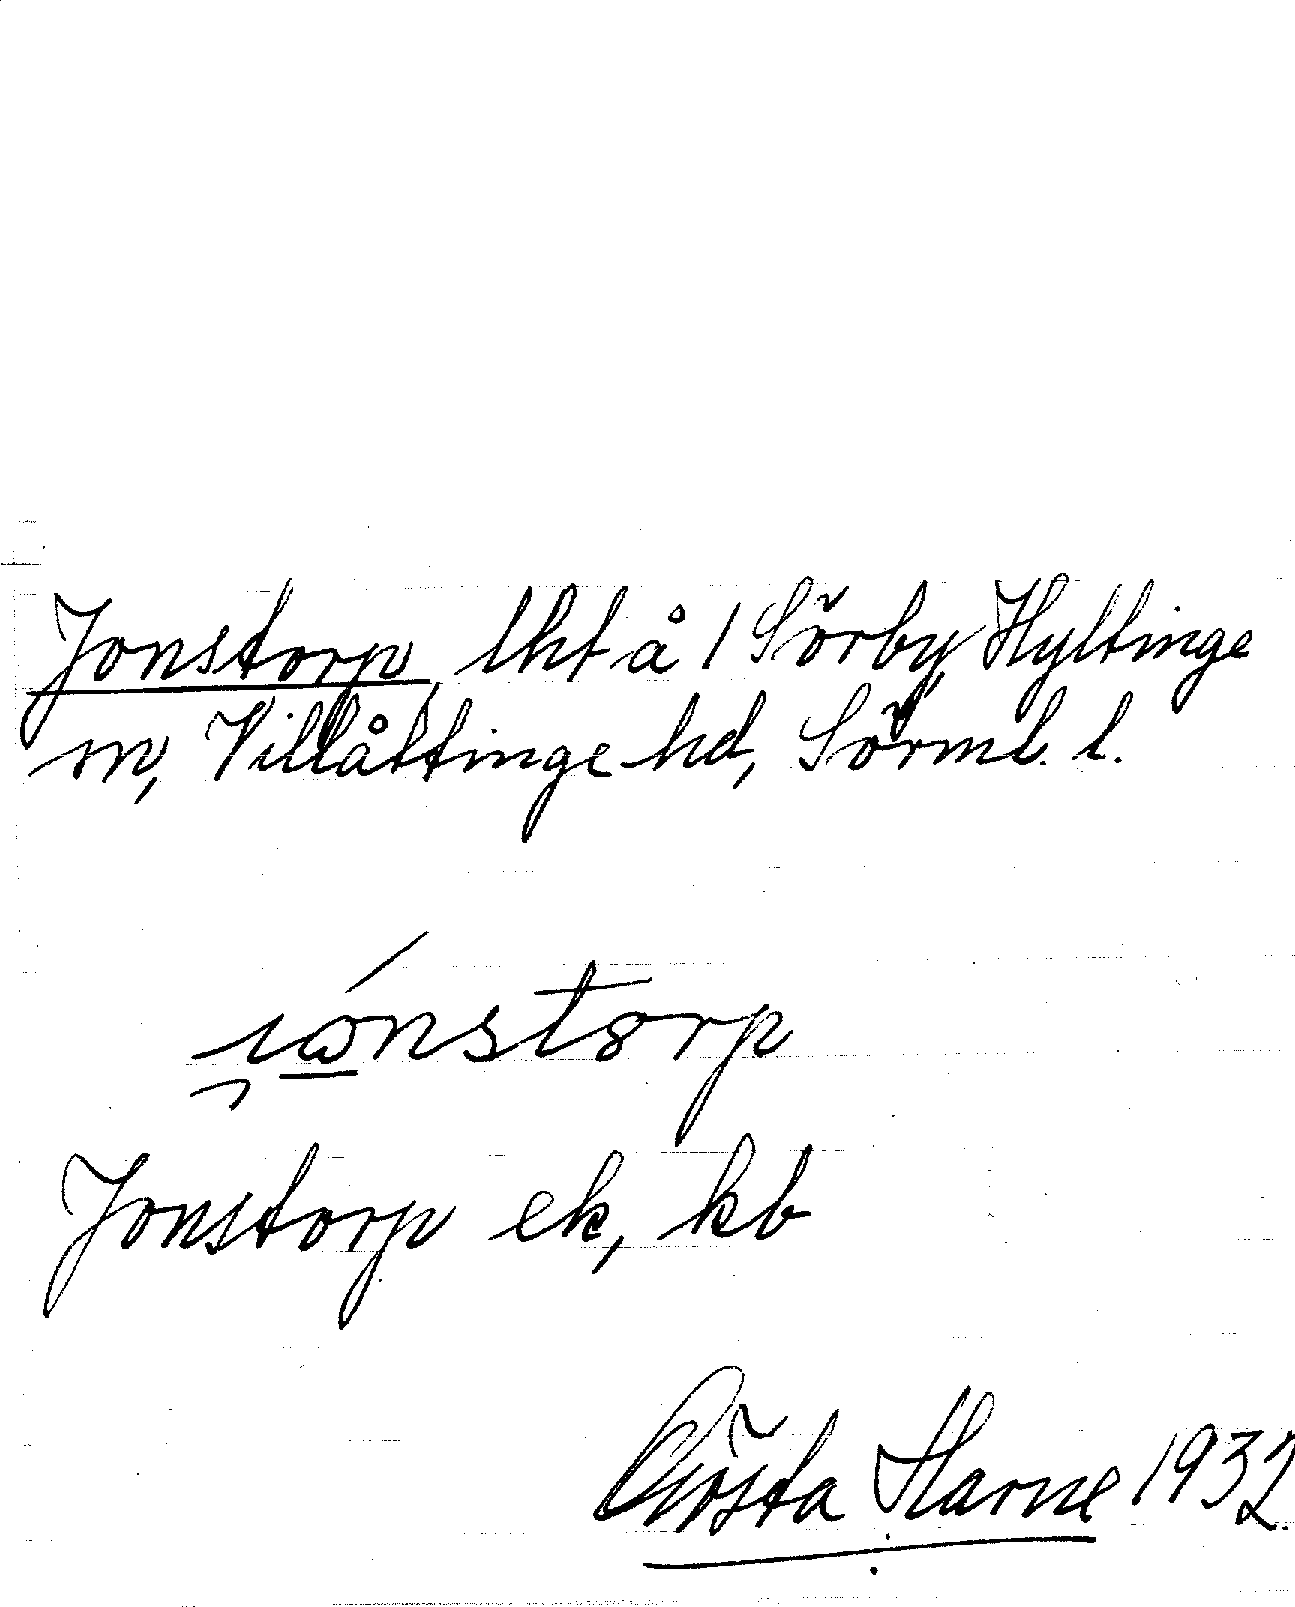 Jonstorp, lht å 1 Sörby, Hyltinge
sn, Villåttinge hd, Sörml. l.
jónstorp
Jonstorp ek, kb
Gösta Harne 1932.